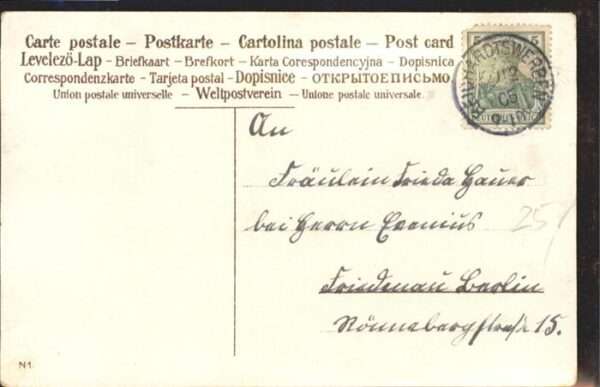 Carte postale – Postkarte – Cartolina postale – Post card
Levelező-Lap – Briefkaart – Brefkort – Karta Corespondencyjna – Dopisnica
Correspondenzkarte – Tarjeta postal – Dopisnice – ОТКРЫТОЕ ПИСЬМО
Union postale universelle – Weltpostverein – Unione postale universale.
5 5
05
An
Fräulein Frieda Hauer
bei Herrn Evenius
25
Friedenau Berlin
Rönnebergstraße 15.
N1